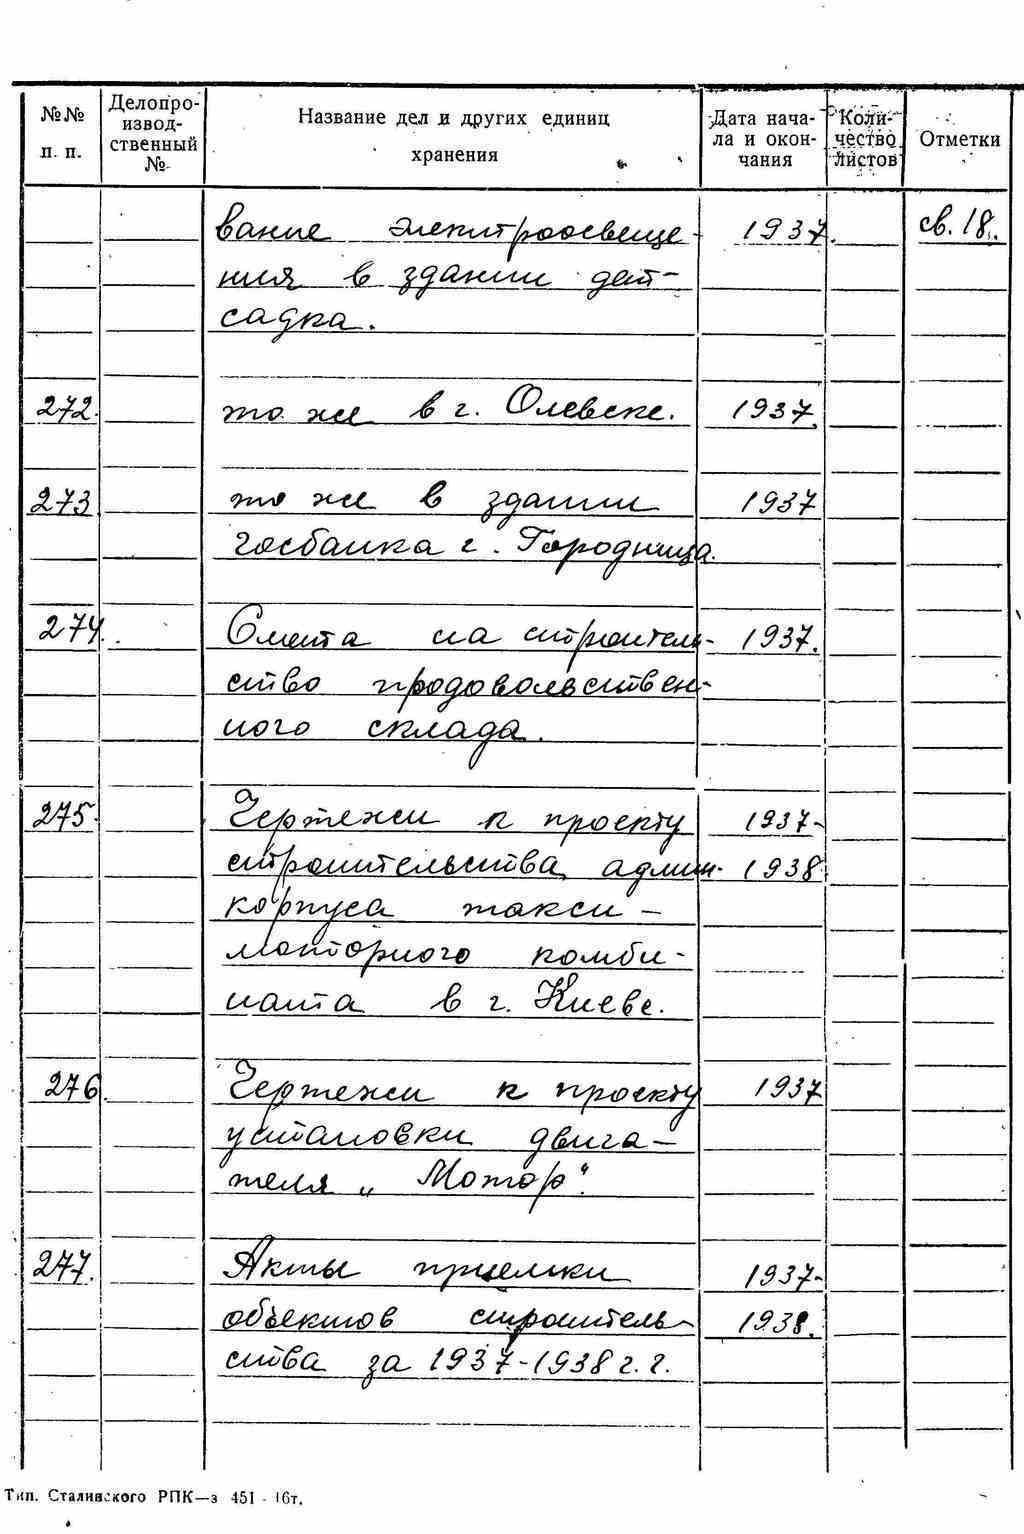 №№ п. п.
Делопроизводственный №
Название дел и других единиц хранения
Дата начала и окончания
Количество листов
Отметки
вание электроосвеще- 1937. св. 18.
ния в здании дет-
садка.
272. то же в г. Олевске. 1937.
273 то же в здании 1937
госбанка г. Городница.
274. Смета на строитель- 1937.
ство продовольствен-
ного склада.
275. Чертежи к проекту 1937-
строительства админ. 1938
корпуса такси-
моторного комби-
ната в г. Киеве.
276 Чертежи к проекту 1937
установки двига-
теля „Мотор".
277. Акты приемки 1937-
объектов строитель- 1938.
ства за 1937-1938 г.г.
Тип. Сталинского РПК—з 451 - 16т.